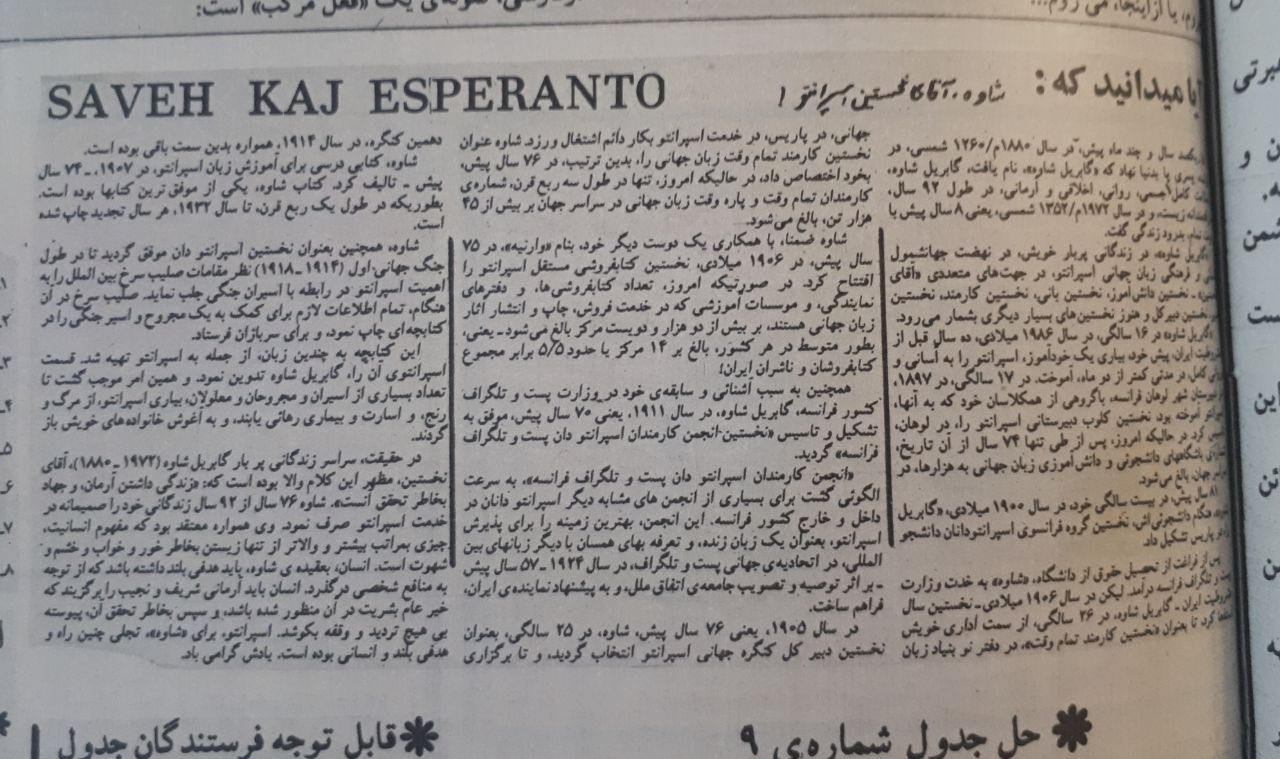 وم، یا از اینجا، می روم...
نمونه‌ی یک «فعل مرکب» است:
آیا میدانید که:
شاوه، آقای نخستین اسپرانتو!
SAVEH KAJ ESPERANTO
سال و چند ماه پیش، در سال ۱۸۸۰م/۱۲۶۰ شمسی، در
پسری پا بدنیا نهاد که «گابریل شاوه»، نام یافت، گابریل شاوه،
کامل جسمی، روانی، اخلاقی و آرمانی، در طول ۹۲ سال،
زیست، و در سال ۱۹۷۲م/۱۳۵۲ شمسی، یعنی ۸ سال پیش با
تمام، بدرود زندگی گفت.
شاوه»، در زندگانی پربار خویش، در نهضت جهانشمول
و فرهنگی زبان جهانی اسپرانتو، در جهت‌های متعددی «آقای
ـ نخستین دانش‌آموز، نخستین بانی، نخستین کارمند، نخستین
نخستین دبیرکل و هنوز نخستین‌های بسیار دیگری بشمار می‌رود.
«گابریل شاوه» در ۱۶ سالگی، در سال ۱۹۸۶ میلادی، ده سال قبل از
مشروطیت ایران، پیش خود، بیاری یک خودآموز، اسپرانتو را به آسانی و
کامل، در مدتی کمتر از دو ماه، آموخت. در ۱۷ سالگی، در ۱۸۹۷،
دبیرستان شهر لوهان فرانسه، باگروهی از همکلاسان خود که به آنها،
اسپرانتو آموخته بود، نخستین کلوب دبیرستانی اسپرانتو را، در لوهان،
کرد. در حالیکه امروز، پس از طی تنها ۷۴ سال از آن تاریخ،
باشگاههای دانشجوئی و دانش‌آموزی زبان جهانی به هزارها، در
جهان، بالغ می‌شود.
۸۱ سال پیش، در بیست سالگی خود، در سال ۱۹۰۰ میلادی، «گابریل
هنگام دانشجوئی‌اش، نخستین گروه فرانسوی اسپرانتودانان دانشجو
در پاریس تشکیل داد.
پس از فراغت از تحصیل حقوق از دانشگاه، «شاوه» به خدت وزارت
و تلگراف فرانسه درآمد. لیکن در سال ۱۹۰۶ میلادی ـ نخستین سال
مشروطیت ایران ـ گابریل شاوه، در ۲۶ سالگی، از سمت اداری خویش
کرد، تا بعنوان «نخستین کارمند تمام وقت»، در دفتر نو بنیاد زبان
جهانی، در پاریس، در خدمت اسپرانتو بکار دائم اشتغال ورزد. شاوه عنوان
نخستین کارمند تمام وقت زبان جهانی را، بدین ترتیب، در ۷۶ سال پیش،
بخود اختصاص داد، در حالیکه امروز، تنها در طول سه ربع قرن، شماره‌ی
کارمندان تمام وقت و پاره وقت زبان جهانی در سراسر جهان بر بیش از ۴۵
هزار تن، بالغ می‌شود.
شاوه ضمنا، با همکاری یک دوست دیگر خود، بنام «وارنیه»، در ۷۵
سال پیش، در ۱۹۰۶ میلادی، نخستین کتابفروشی مستقل اسپرانتو را
افتتاح کرد. در صورتیکه امروز، تعداد کتابفروشی‌ها، و دفترهای
نمایندگی، و موسسات آموزشی که در خدمت فروش، چاپ و انتشار آثار
زبان جهانی هستند، بر بیش از دو هزار و دویست مرکز بالغ می‌شود ـ یعنی،
بطور متوسط در هر کشور، بالغ بر ۱۴ مرکز یا حدود ۵/۵ برابر مجموع
کتابفروشان و ناشران ایران؛
همچنین به سبب آشنائی و سابقه‌ی خود در وزارت پست و تلگراف
کشور فرانسه، گابریل شاوه، در سال ۱۹۱۱، یعنی ۷۰ سال پیش، موفق به
تشکیل و تاسیس «نخستین انجمن کارمندان اسپرانتو دان پست و تلگراف
فرانسه» گردید.
«انجمن کارمندان اسپرانتو دان پست و تلگراف فرانسه»، به سرعت
الگوئی گشت برای بسیاری از انجمن های مشابه دیگر اسپرانتو دانان در
داخل و خارج کشور فرانسه. این انجمن، بهترین زمینه را برای پذیرش
اسپرانتو، بعنوان یک زبان زنده، و تعرفه بهای همسان با دیگر زبانهای بین
المللی، در اتحادیه‌ی جهانی پست و تلگراف، در سال ۱۹۲۴ ـ ۵۷ سال پیش
ـ بر اثر توصیه و تصویب جامعه‌ی اتفاق ملل، و به پیشنهاد نماینده‌ی ایران،
فراهم ساخت.
در سال ۱۹۰۵، یعنی ۷۶ سال پیش، شاوه، در ۲۵ سالگی، بعنوان
نخستین دبیر کل کنگره جهانی اسپرانتو انتخاب گردید، و تا برگزاری
دهمین کنگره، در سال ۱۹۱۴، همواره بدین سمت باقی بوده است.
شاوه، کتابی درسی برای آموزش زبان اسپرانتو، در ۱۹۰۷، ـ ۷۴ سال
پیش ـ تالیف کرد. کتاب شاوه، یکی از موفق ترین کتابها بوده است.
بطوریکه در طول یک ربع قرن، تا سال ۱۹۳۲، هر سال تجدید چاپ شده
است.
شاوه، همچنین بعنوان نخستین اسپرانتو دان موفق گردید تا در طول
جنگ جهانی اول (۱۹۱۴-۱۹۱۸) نظر مقامات صلیب سرخ بین الملل را به
اهمیت اسپرانتو در رابطه با اسیران جنگی جلب نماید. صلیب سرخ در آن
هنگام، تمام اطلاعات لازم برای کمک به یک مجروح و اسیر جنگی را در
کتابچه‌ای چاپ نمود، و برای سربازان فرستاد.
این کتابچه به چندین زبان، از جمله به اسپرانتو تهیه شد. قسمت
اسپرانتوی آن را، گابریل شاوه تدوین نمود. و همین امر موجب گشت تا
تعداد بسیاری از اسیران و مجروحان و معلولان، بیاری اسپرانتو، از مرگ و
رنج، و اسارت و بیماری رهائی یابند، و به آغوش خانواده‌های خویش باز
گردند.
در حقیقت، سراسر زندگانی پر بار گابریل شاوه (۱۹۷۲ ـ ۱۸۸۰)، آقای
نخستین، مظهر این کلام والا بوده است که: «زندگی داشتن آرمان، و جهاد
بخاطر تحقق آنست». شاوه ۷۶ سال از ۹۲ سال زندگانی خود را صمیمانه در
خدمت اسپرانتو صرف نمود. وی همواره معتقد بود که مفهوم انسانیت،
چیزی بمراتب بیشتر و والاتر از تنها زیستن بخاطر خور و خواب و خشم و
شهوت است. انسان، بعقیده‌ی شاوه، باید هدفی بلند داشته باشد که از توجه
به منافع شخصی درگذرد. انسان باید آرمانی شریف و نجیب را برگزیند که
خیر عام بشریت در آن منظور شده باشد، و سپس بخاطر تحقق آن، پیوسته
بی هیچ تردید و وقفه بکوشد. اسپرانتو، برای «شاوه»، تجلی چنین راه و
هدفی بلند و انسانی بوده است. یادش گرامی باد.
حل جدول شماره‌ی ۹
قابل توجه فرستندگان جدول